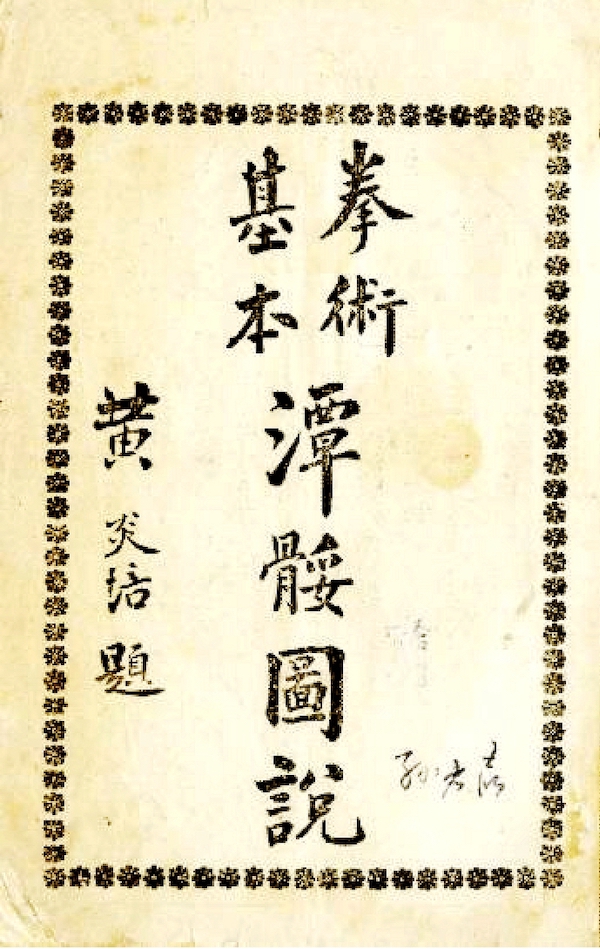 拳術
基本
潭骽圖說
黃炎培題